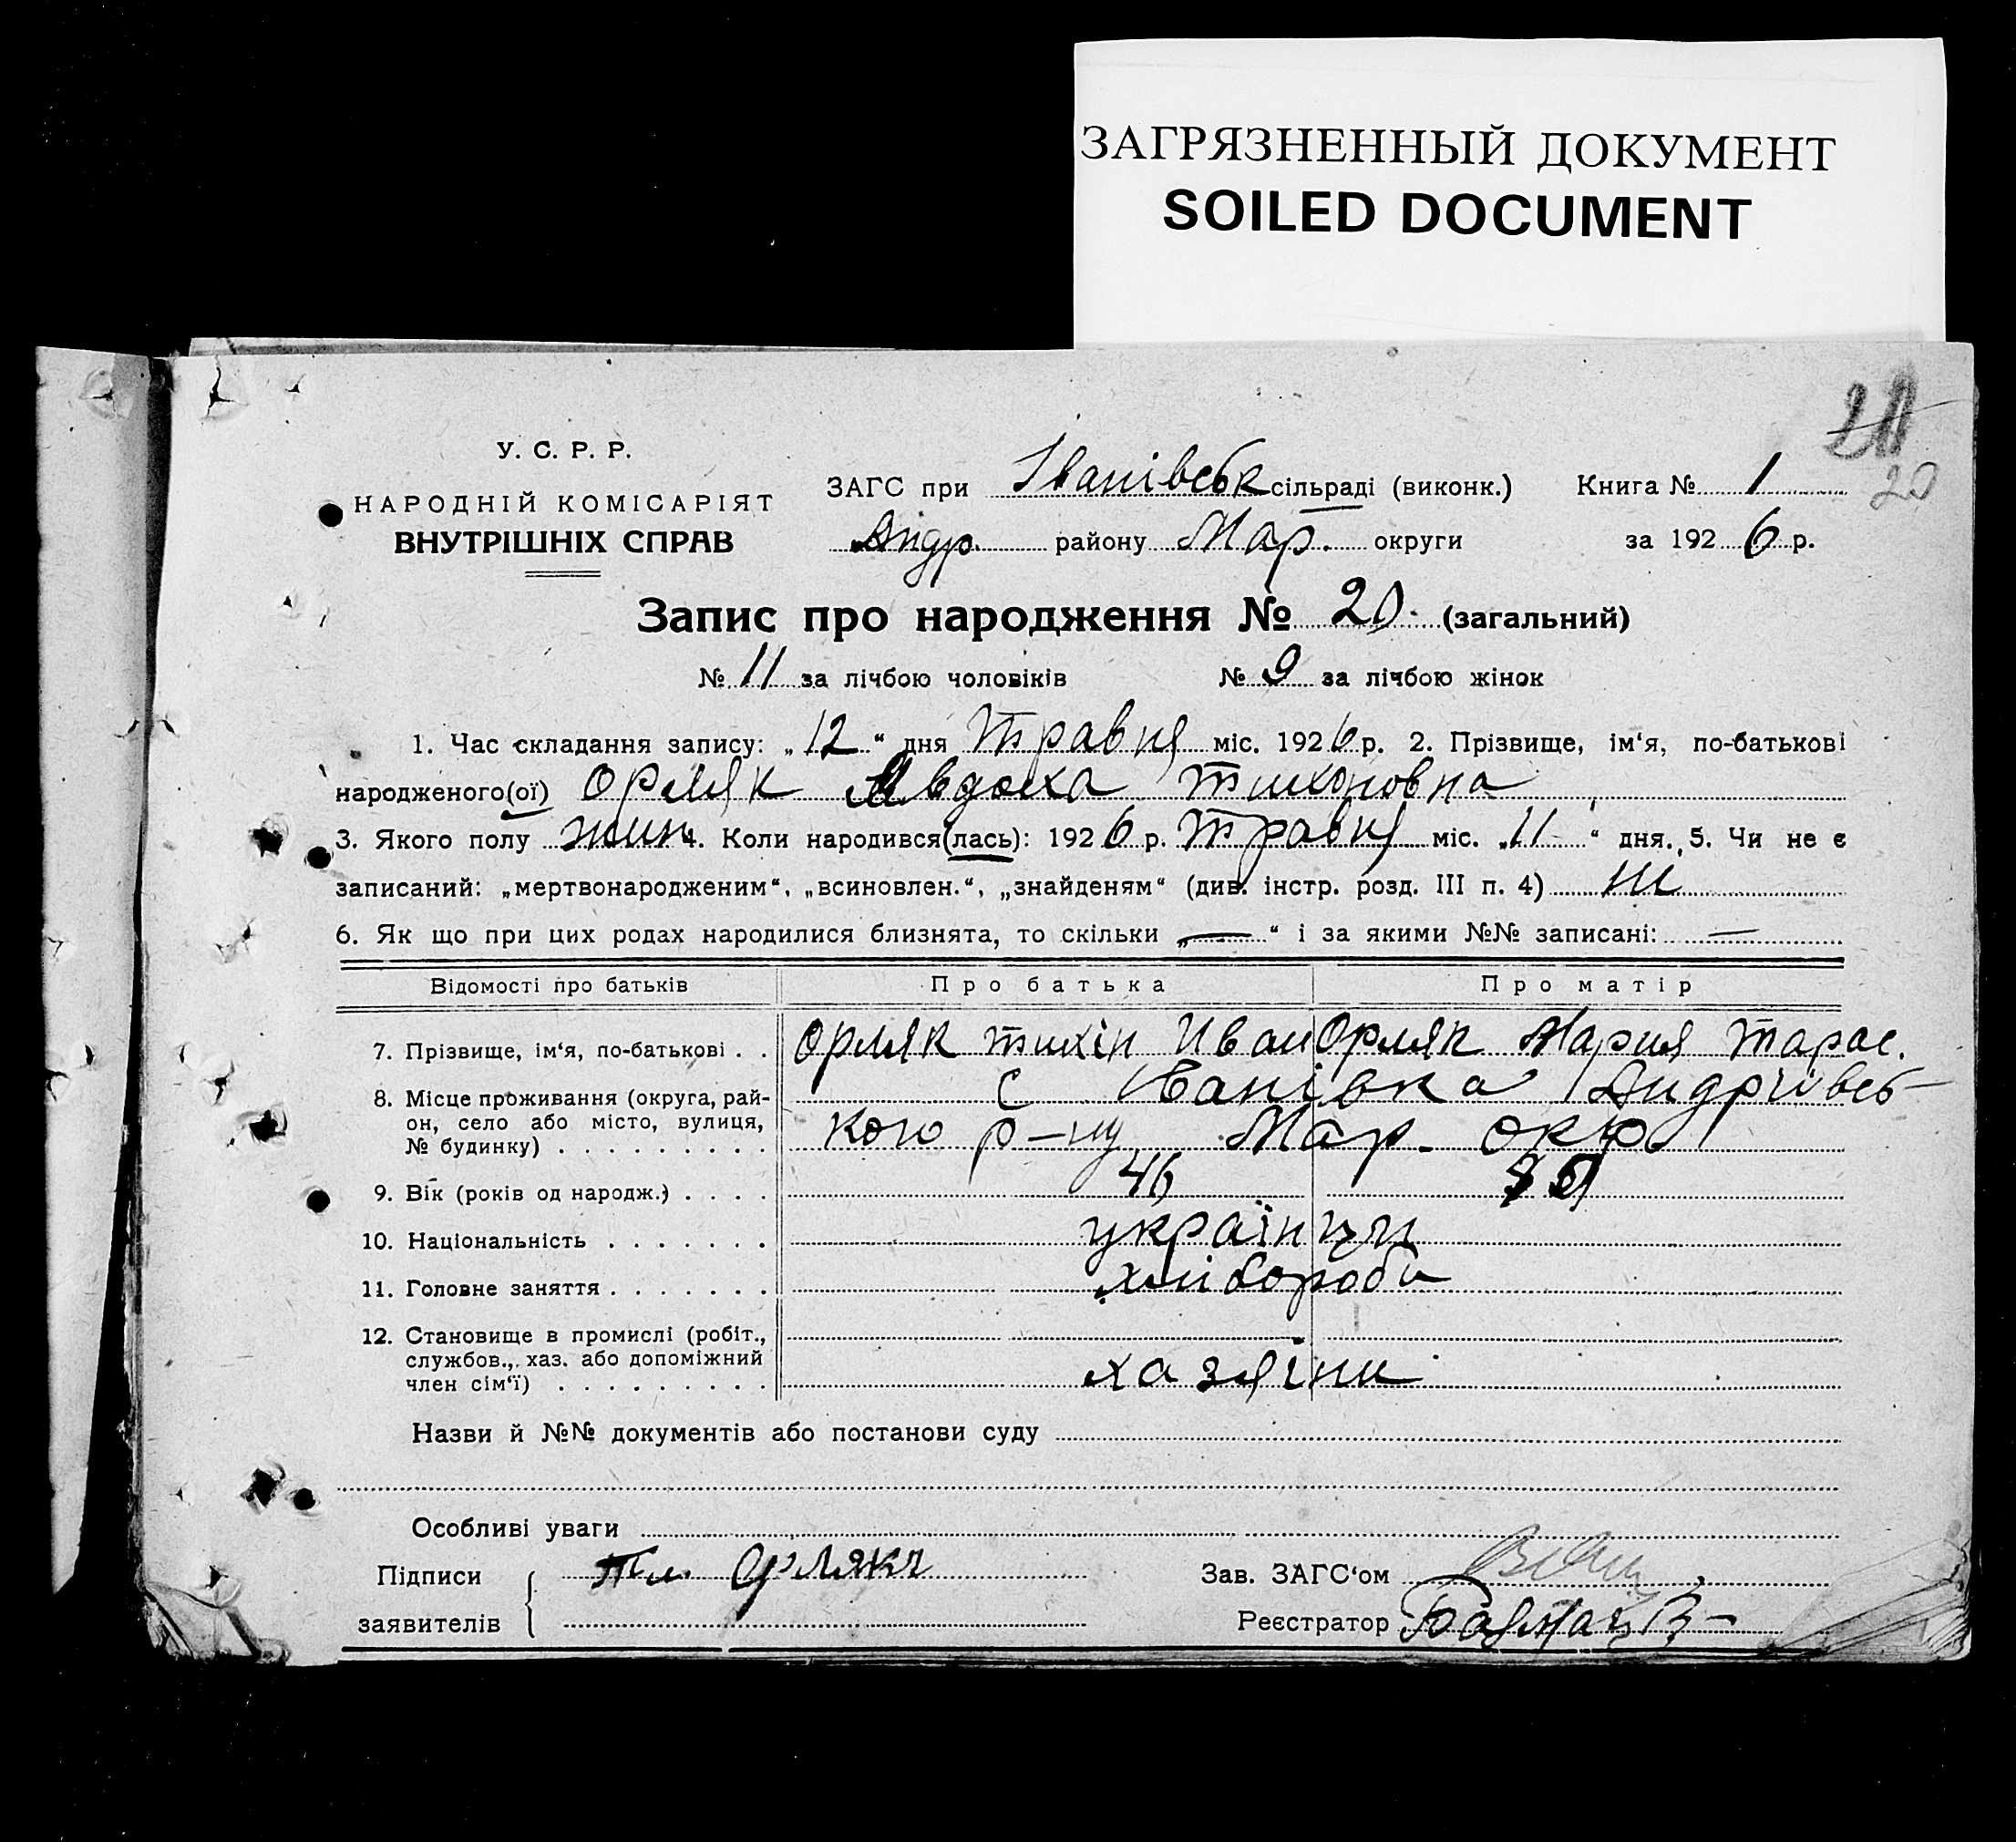 ЗАГРЯЗНЕННЫЙ ДОКУМЕНТ
SOILED DOCUMENT
20
У. С. Р. Р.
НАРОДНІЙ КОМІСАРІЯТ
ВНУТРІШНІХ СПРАВ
ЗАГС при Іванівськ сільраді (виконк.) Книга № 1
Андр. району Мар. округи за 1926 р.
Запис про народження № 20 (загальний)
№ 11 за лічбою чоловіків № 9 за лічбою жінок
1. Час складання запису: „12“ дня Травня міс. 1926 р. 2. Прізвище, ім‘я, по-батькові
народженого(ої) Орляк Явдоха Тихоновна
3. Якого полу жин 4. Коли народився(лась): 1926 р. Травня міс. „11“ дня. 5. Чи не є
записаний: „мертвонародженим“, „всиновлен.“, „знайденям“ (див. інстр. розд. III п. 4) Ні
6. Як що при цих родах народилися близнята, то скільки „—“ і за якими №№ записані: —
Відомості про батьків Про батька Про матір
7. Прізвище, ім‘я, по-батькові . . Орляк Тихін Иван Орляк Мария Тарас.
8. Місце проживання (округа, рай-
он, село або місто, вулиця,
№ будинку) . . . . . . . . .
с Іванівка Андріівсь-
кого р-ну Мар. окр
9. Вік (років од народж.) . . . . 46
10. Національність . . . . . . . українци
11. Головне заняття . . . . . . . хлібороби
12. Становище в промислі (робіт.,
службов., хаз. або допоміжний
член сім‘ї) . . . . . . . . .
хазяіни
Назви й №№ документів або постанови суду
Особливі уваги
Підписи
заявителів
Орляк
Зав. ЗАГС‘ом
Реєстратор